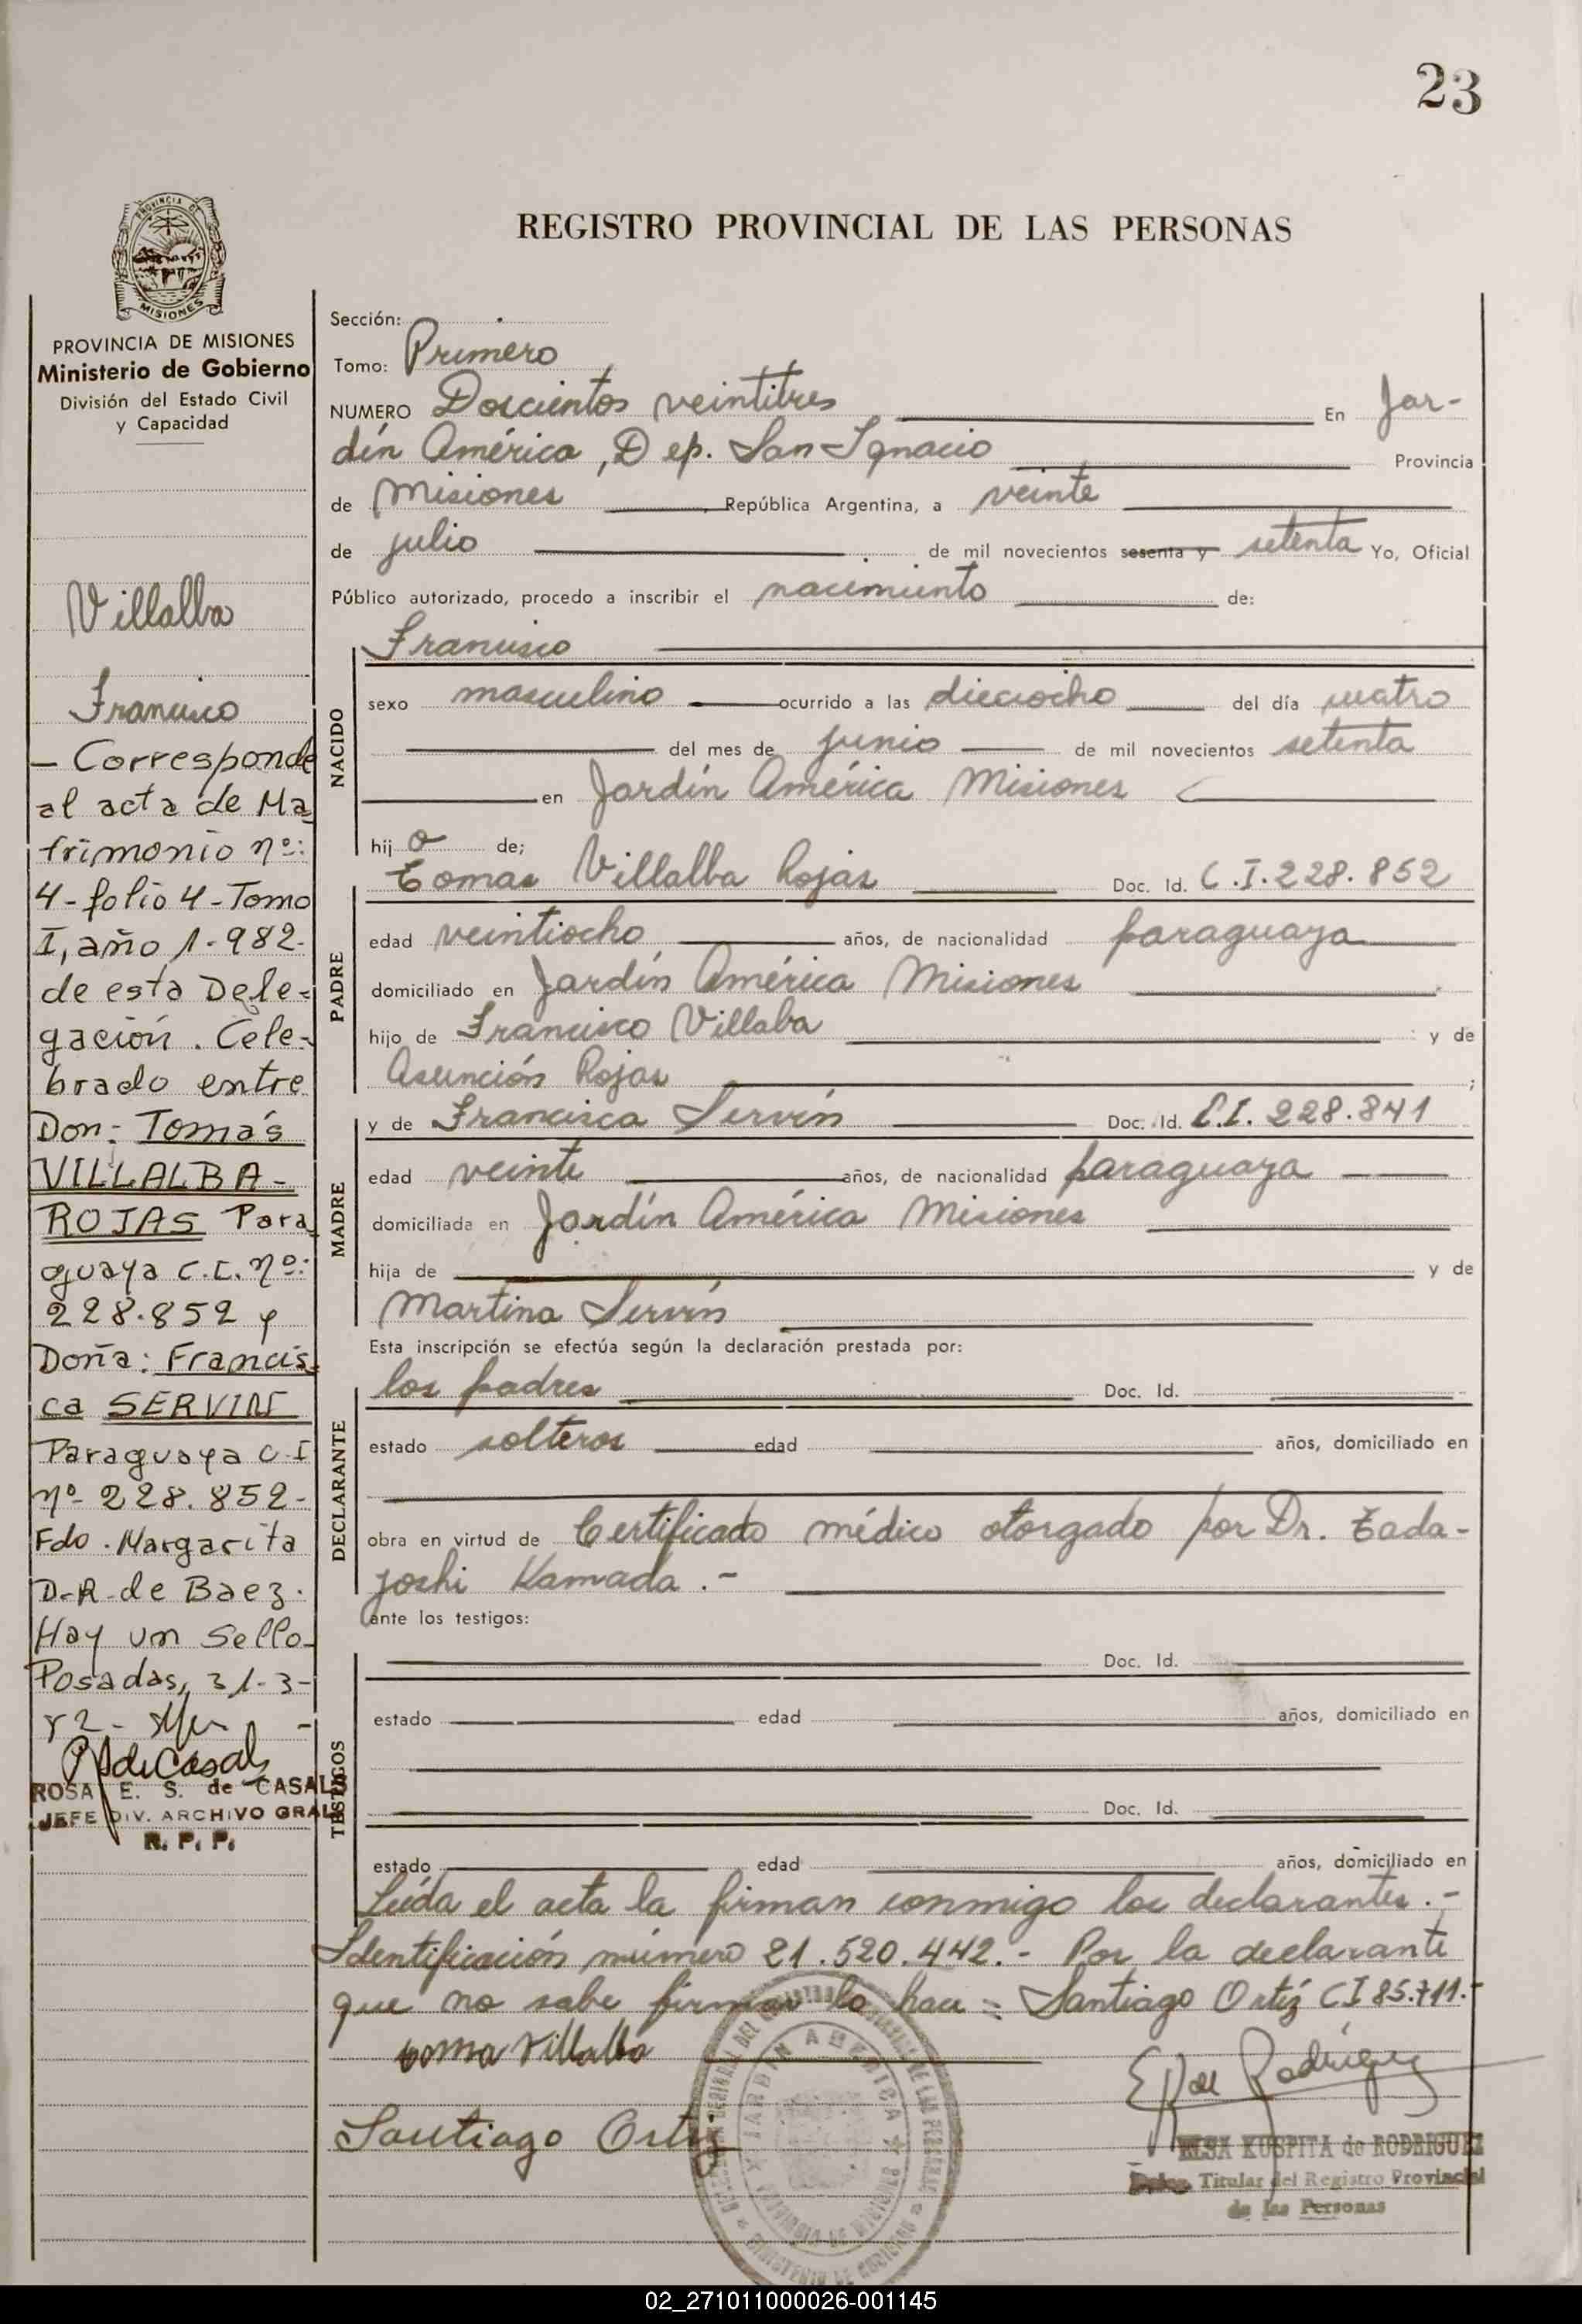 23
REGISTRO PROVINCIAL DE LAS PERSONAS
PROVINCIA DE
MISIONES
PROVINCIA DE MISIONES
Ministerio de Gobierno
División del Estado Civil
y Capacidad
Villalba
Francisco
- Corresponde
al acta de Ma
trimonio nº:
4-folio 4-Tomo
I, año 1.982.
de esta Dele-
gación. Cele-
brado entre
Don: Tomás
VILLALBA-
ROJAS Para
guaya C.I. nº:
228.852 y
Doña: Francis-
ca SERVIN
Paraguaya C.I
nº 228.852-
Fdo. Margarita
D.R. de Baez.
Hay un Sello-
Posadas, 31-3-
82-
ROSA E. S. de CASALS
JEFE DIV. ARCHIVO GRAL
R. P. P.
Sección:
Tomo: Primero
NUMERO Doscientos veintitres En Jar-
dín América, Dep. San Ignacio Provincia
de Misiones, República Argentina, a veinte
de julio de mil novecientos sesenta y setenta Yo, Oficial
Público autorizado, procedo a inscribir el nacimiento de:
Francisco
NACIDO
sexo masculino ocurrido a las dieciocho del día cuatro
del mes de junio de mil novecientos setenta
en Jardín América Misiones
hijo de;
PADRE
Tomas Villalba Rojas Doc. Id. C.I.228.852
edad veintiocho años, de nacionalidad paraguaya
domiciliado en Jardín América Misiones
hijo de Francisco Villaba y de
Asunción Rojas ;
MADRE
y de Francisca Servín Doc. Id. C.I. 228.841
edad veinte años, de nacionalidad paraguaya
domiciliada en Jardín América Misiones
hija de y de
Martina Servín
Esta inscripción se efectúa según la declaración prestada por:
DECLARANTE
los padres Doc. Id.
estado solteros edad años, domiciliado en
obra en virtud de Certificado médico otorgado por Dr. Tada-
joshi Kamada.-
ante los testigos:
TESTIGOS
Doc. Id.
estado edad años, domiciliado en
Doc. Id.
estado edad años, domiciliado en
Leída el acta la firman conmigo los declarantes.-
Identificación número 21.520.442.- Por la declarante
que no sabe firmar lo hace = Santiago Ortíz CI 85.711.-
toma Villalba
Santiago Ortiz
JARDIN AMERICA
PROVINCIA DE MISIONES
MINISTERIO DE GOBIERNO
ELSA KUSPITA de RODRIGUEZ
Titular del Registro Provincial
de las Personas
02_271011000026-001145